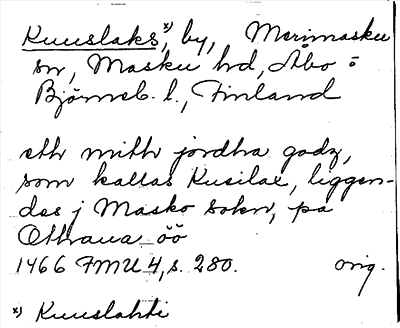 Kuuslaks x), by, Merimasku
sn, Masku hd, Åbo o
Björneb. l., Finland
eth mith jordha godz,
som kallas Kusilax, liggen-
des j Masko sokn, pa
Othraua öö
1466 FMU 4, s. 280. orig.
x) Kuuslahti